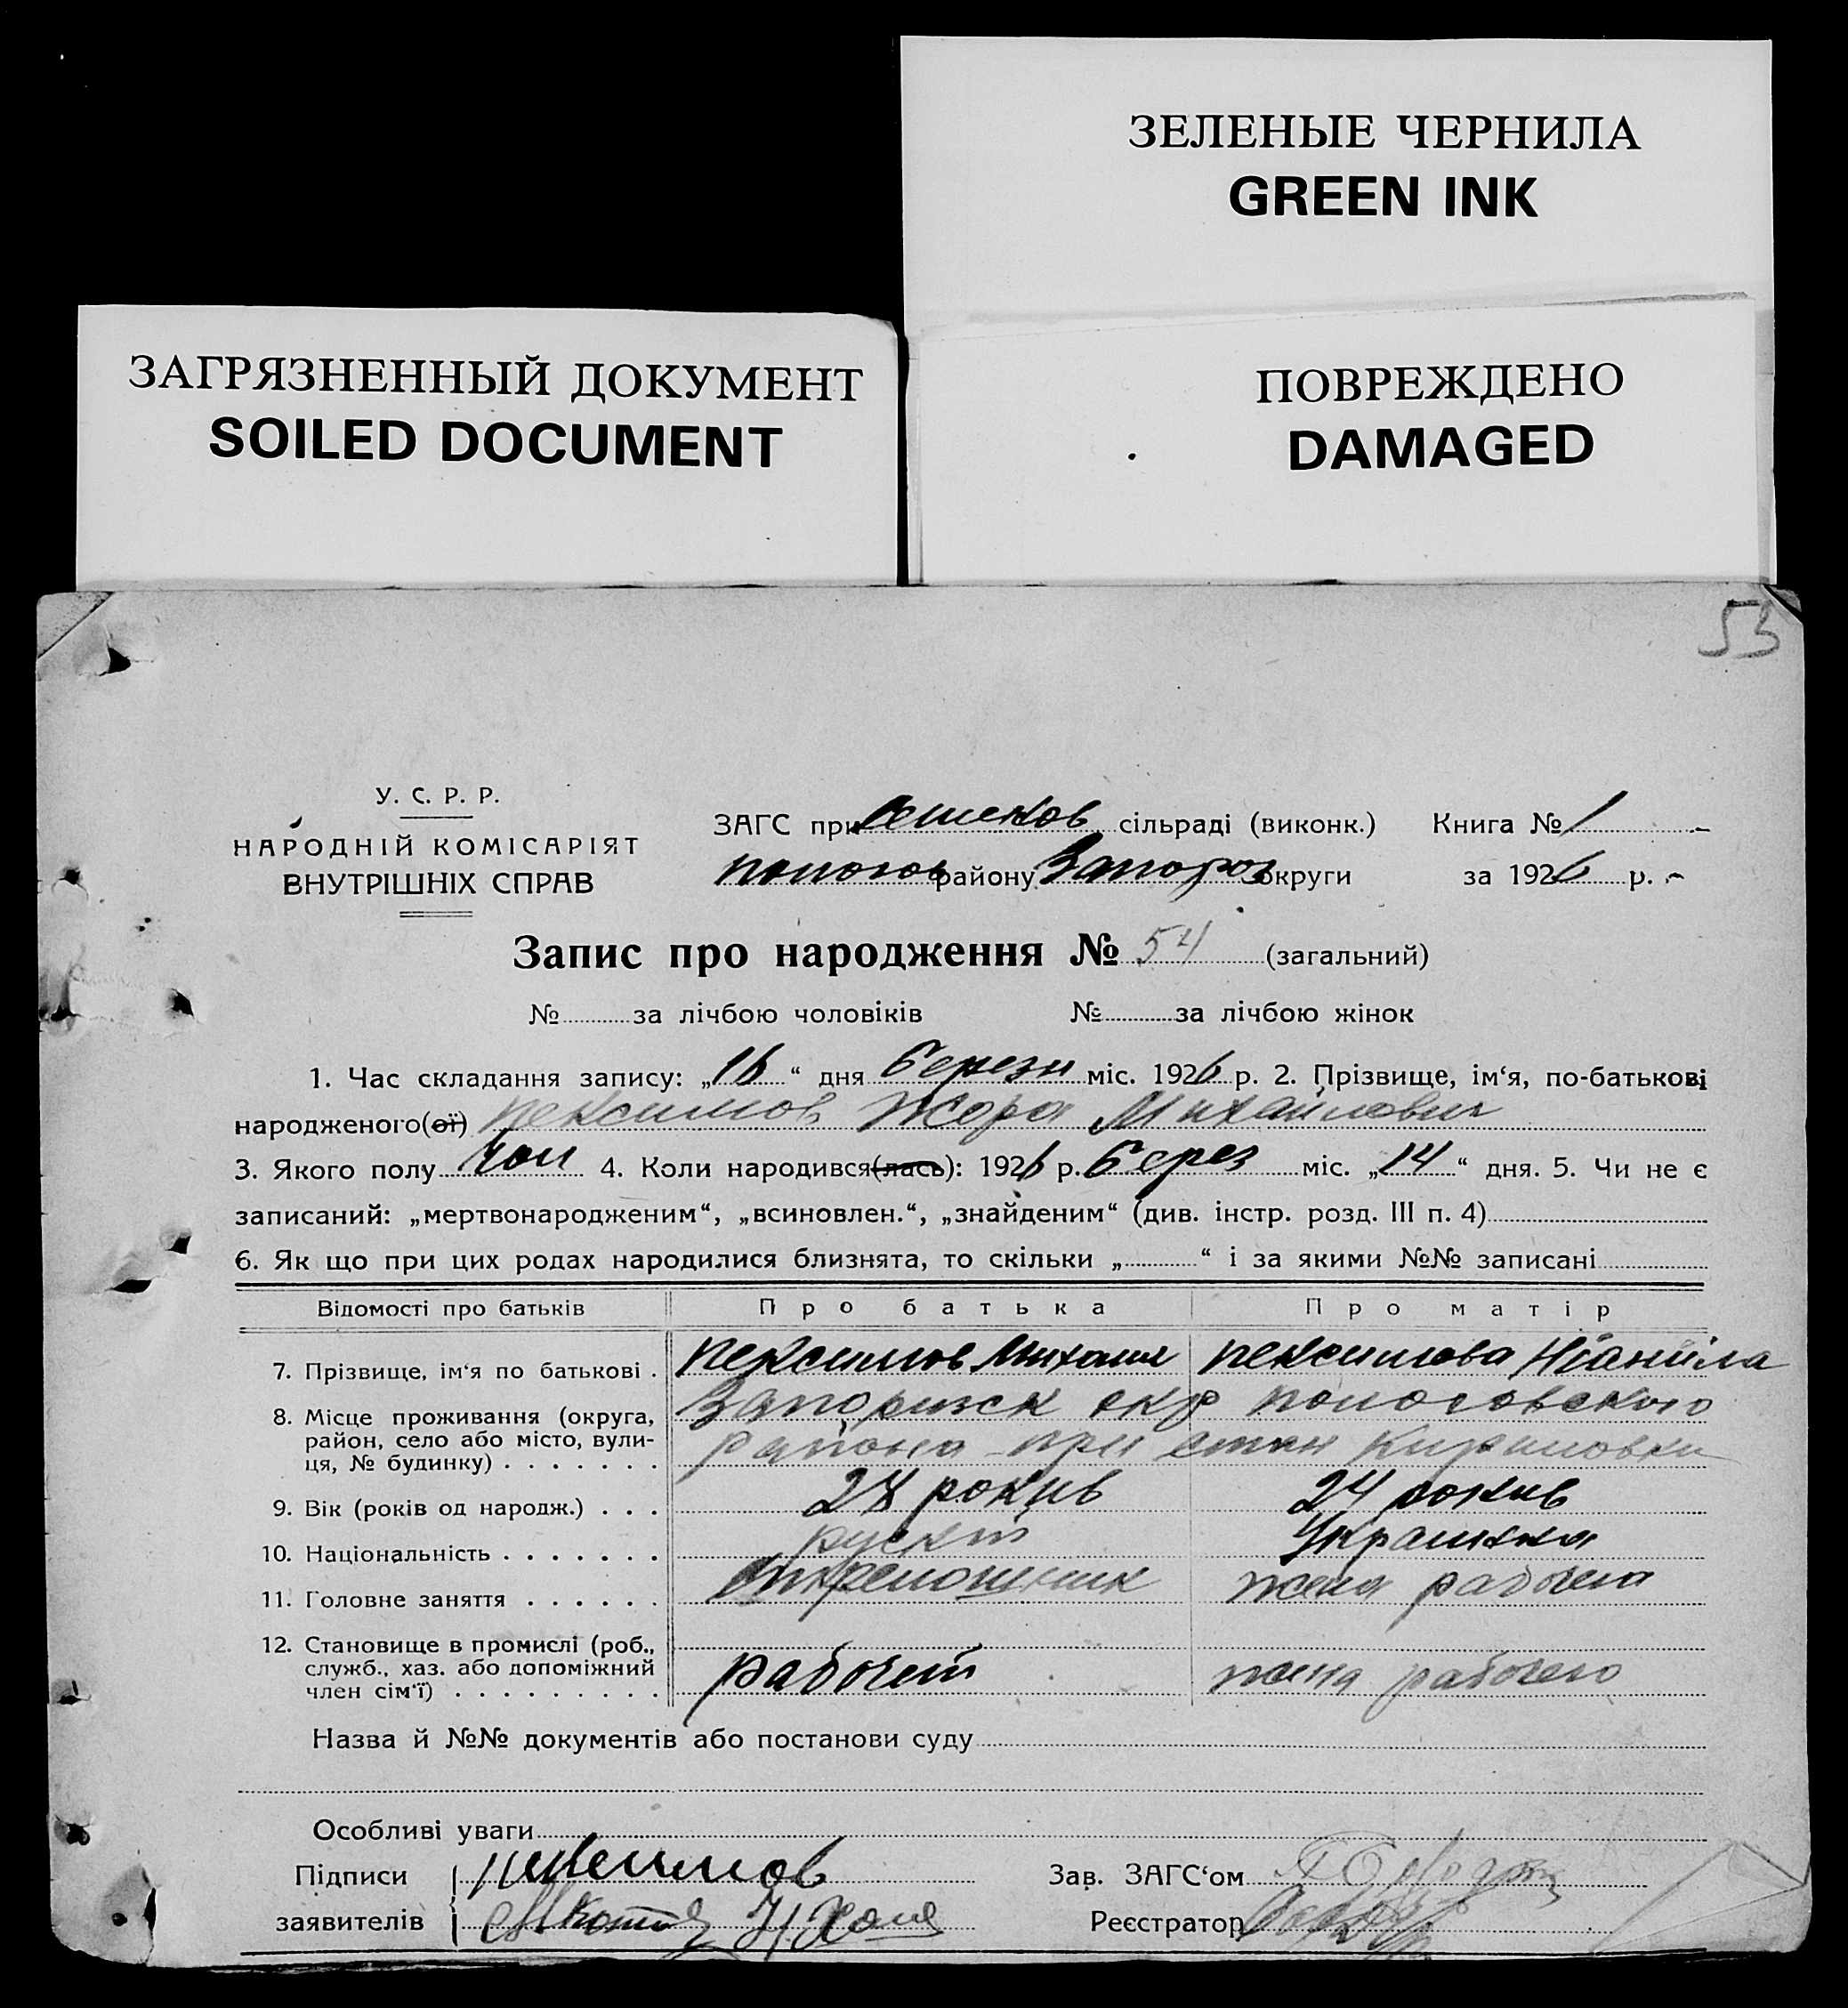 ЗЕЛЕНЫЕ ЧЕРНИЛА
GREEN INK
ЗАГРЯЗНЕННЫЙ ДОКУМЕНТ
SOILED DOCUMENT
ПОВРЕЖДЕНО
DAMAGED
53
У. С. Р. Р.
НАРОДНІЙ КОМІСАРІЯТ
ВНУТРІШНІХ СПРАВ
ЗАГС при сільраді (виконк.) Книга № 1
пологов району Запороз округи за 1926 р.
Запис про народження № 54 (загальний)
№ за лічбою чоловіків № за лічбою жінок
1. Час складання запису: „16“ дня березн міс. 1926 р. 2. Прізвище, ім‘я, по-батькові
народженого(ої) пексимов Жора Михайлович
3. Якого полу чол 4. Коли народився(лась): 1926 р. берез міс. „14“ дня. 5. Чи не є
записаний: „мертвонародженим“, „всиновлен.“, „знайденим“ (див. інстр. розд. III п. 4)
6. Як що при цих родах народилися близнята, то скільки „ “ і за якими №№ записані
Відомості про батьків Про батька Про матір
7. Прізвище, ім‘я по батькові . пексимов Михаил пексимова
8. Місце проживання (округа, район, село або місто, вулиця, № будинку) Запоризск окр пологовского
района при стан Кирилловки
9. Вік (років од народж.) . . . рокив 24 рокив
10. Національність Украинка
11. Головне заняття жена рабочего
12. Становище в промислі (роб., служб., хаз. або допоміжний член сім‘ї) рабочей жена рабочего
Назва й №№ документів або постанови суду
Особливі уваги
Підписи Пексимов Зав. ЗАГС‘ом
заявителів Реєстратор